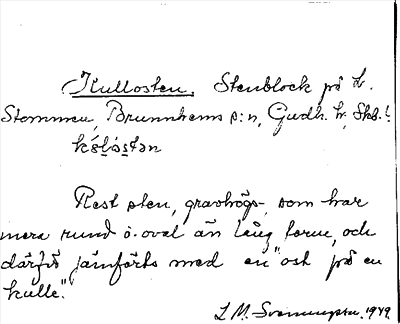 Kullosten, Stenblock på hr.
Stommen, Brunnhems s:n, Gudh. hr, Skb. l.
Rest sten, gravhögs-, som har
mera rund o. oval än lång form, och
därför jämförts med en "ost på en
kulle".
1949